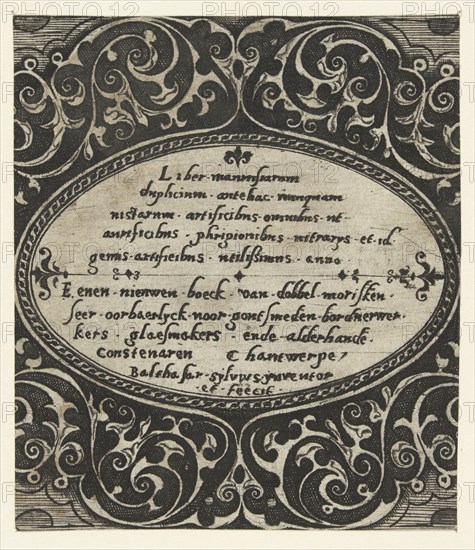 Liber · maurusiarum
duplicium · antehac · nunquam
uisarum · artificibus · omnibus · ut
aurificibus · phrigionibus · uitrarys · et · id
genus · artificibus · utilissimus · anno
Eenen · nieuwen · boeck · van · dobbel · morisken ·
seer · oorbaerlyck · voor · goutsmeden · borduerwer
kers · glaesmakers · ende · alderhande ·
Constenaren Thantwerpe
Balthasar · sylvius · inventor
et · feecit ·